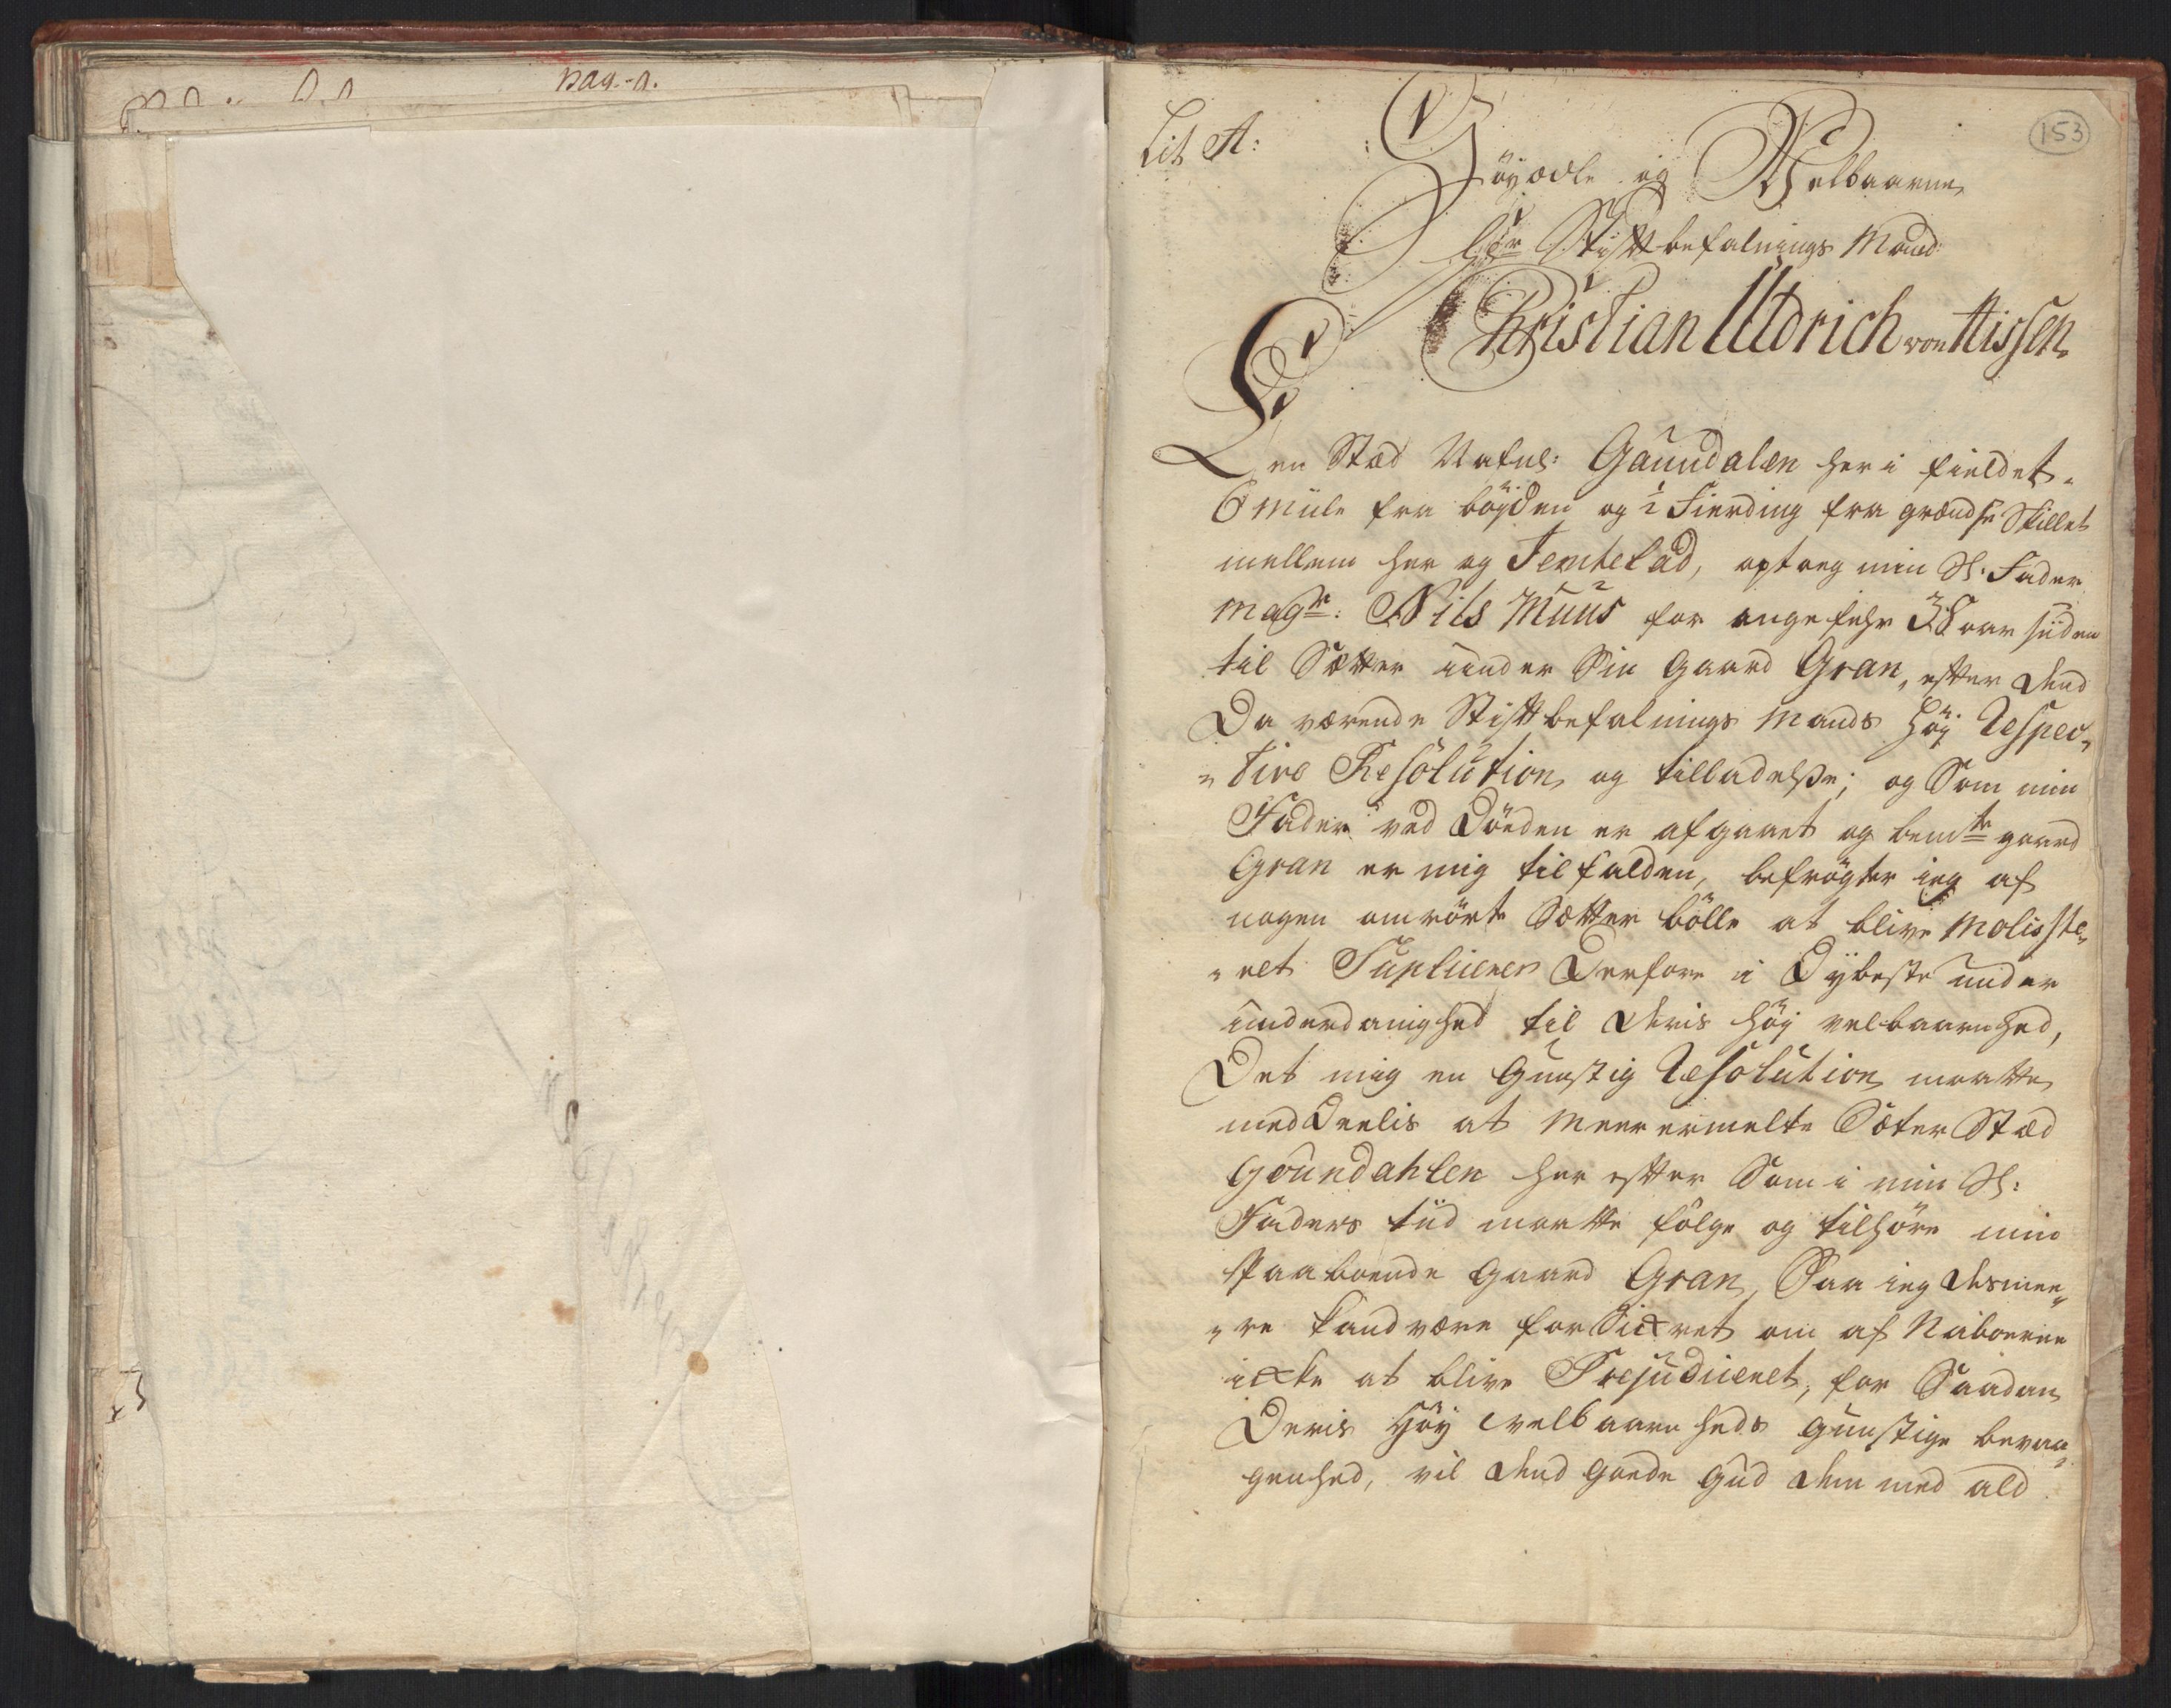 pag. a.
153
Lit A:
Höyædle og Welbaarne
Hr Stiftbefalnings Mand
Christian Uldrich von Nissen
Een Stæd Nafnl: Gaundalen her i fieldet
6 Miile fra bøygden og ½ Fierding fra grændse Skillet
mellem her og Jemtelad, optoeg min Sl: Fader
Magr: Nils Muus for ungefehr 38 aar siiden
til Sætter under Sin Gaard Gran, efter dend
Da værende Stiftbefalnings Mands høy Respec„
„tive Resolution og tilladelsse; og Som min
Fader ved Døeden er afgaaet og bemte gaard
Gran er mig tilfalden, befrøgter ieg af
nogen omrørte Sætter bølle at blive Moliste„
„ret Suplicerer Derfore i Dybeste under
underdanighed til Deris høy velbaarnhed,
Det mig en Gunstig Resolution maatte
meddeelis at Meerermelte Sæter Stæd
Goundahlen her efter Som i min Sl:
Faders tiid maatte følge og tilhøre min
Paaboende Gaard Gran, Saa ieg desmee„
„re kand være forSickret om af Naboerne
icke at blive Prejudiceret, for Saadan
Deris Høy welbaarnheds Gunstige bevaa„
genhed, vil dend Goede Gud dem med ald